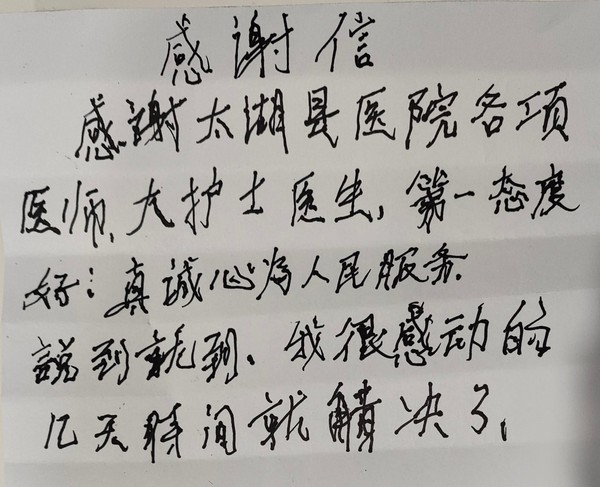 感谢信
感謝太湖县医院各项
医师、大护士医生,第一态度
好:真誠心为人民服务.
説到就到、我很感动的
几天时间就解决了,